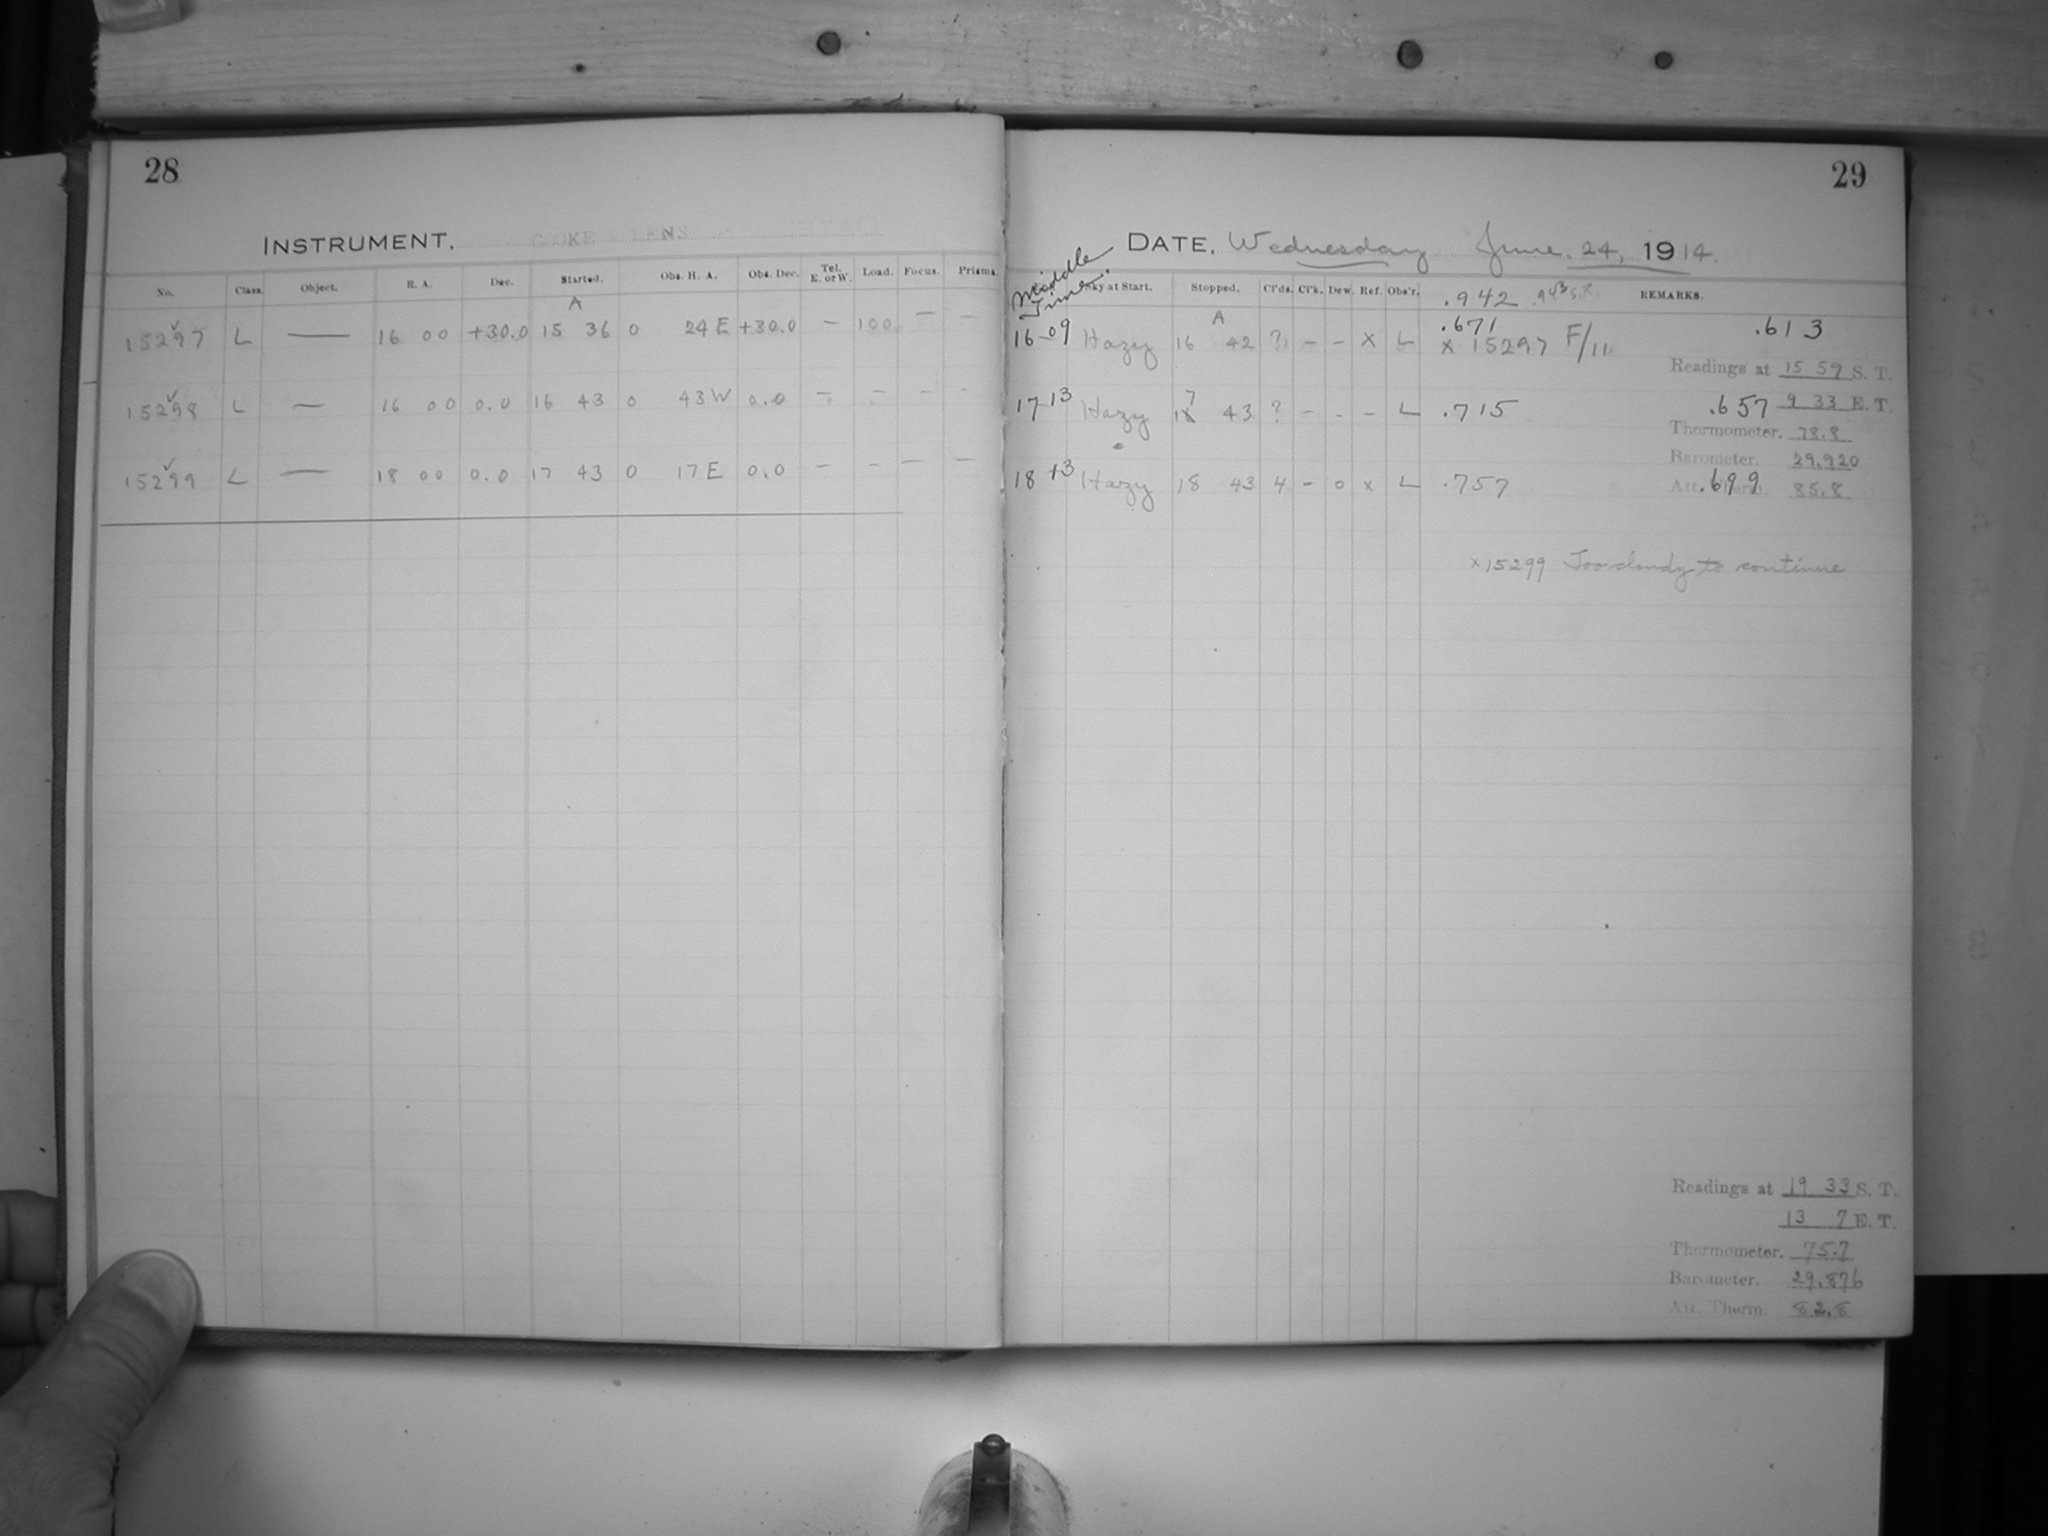 28
INSTRUMENT. COOKE LENS
No. Class. Object. R. A. Dec. Started. Obs. H. A. Obs. Dec. Tel. E. or W. Load. Focus. Prisms.
A
15297 L — 16 00 +30.0 15 36 0 24 E +30.0 — 100 — —
15298 L — 16 00 0.0 16 43 0 43 W 0.0 — — — —
15299 L — 18 00 0.0 17 43 0 17 E 0.0 — — — —
29
DATE. Wednesday June 24, 1914.
Middle Time. Sky at Start. Stopped. Cl'ds. Cl'k. Dew. Ref. Obs'r. .942 .943 S.R. REMARKS.
A
16-09 Hazy 16 42 ? – – x L .671 .613
x 15297 F/11
Readings at 15 59 S. T.
17-13 Hazy 17 43 ? – – – L .715 .657 9 33 E. T.
Thermometer. 78.8
Barometer. 29.920
18 13 Hazy 18 43 4 – 0 x L .757 .699
Att. Therm. 85.8
x 15299 Too cloudy to continue
Readings at 19 33 S. T.
13 7 E. T.
Thermometer. 75.7
Barometer. 29.876
Att. Therm. 82.8